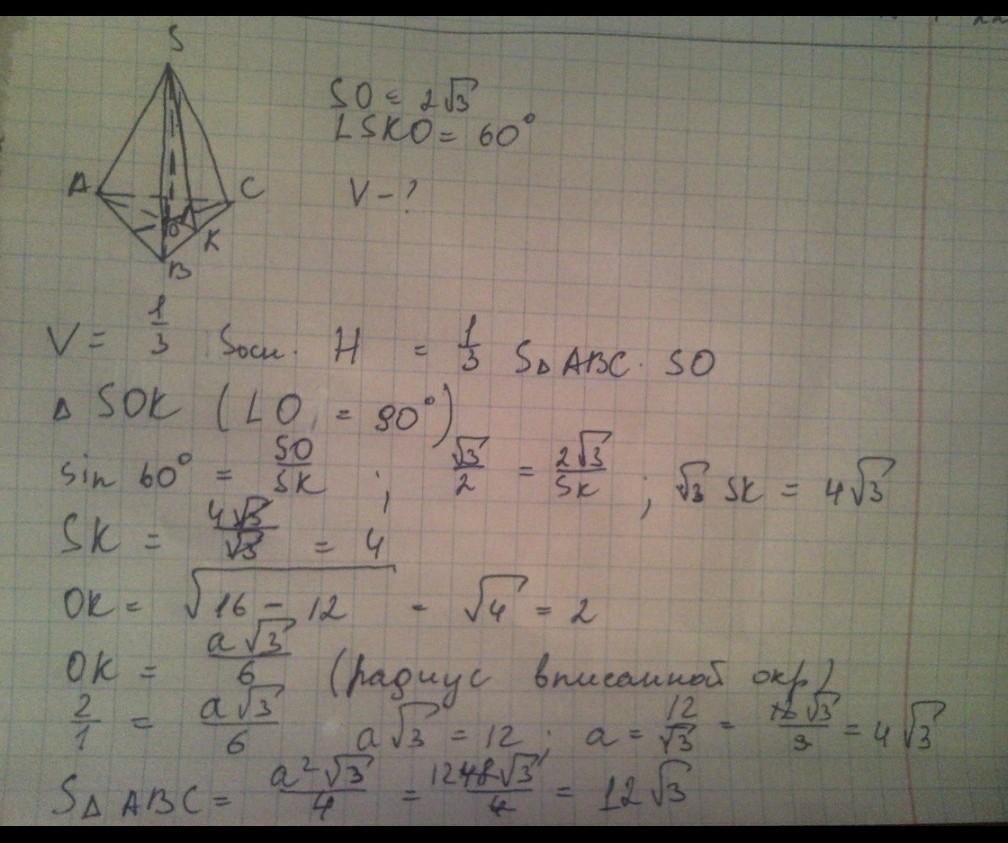 S
SO = 2√3
∠SKO = 60°
A
C
V - ?
O
K
B
V = 1/3 Sосн. H = 1/3 S△ABC · SO
△ SOK (∠O = 90°)
sin 60° = SO/SK ; √3/2 = 2√3/SK ; √3 SK = 4√3
SK = 4√3/√3 = 4
OK = √(16 - 12) = √4 = 2
OK = a√3/6 (радиус вписанной окр)
2/1 = a√3/6 a√3 = 12 ; a = 12/√3 = 12√3/3 = 4√3
S△ ABC = a²√3/4 = 12 48√3/4 = 12√3